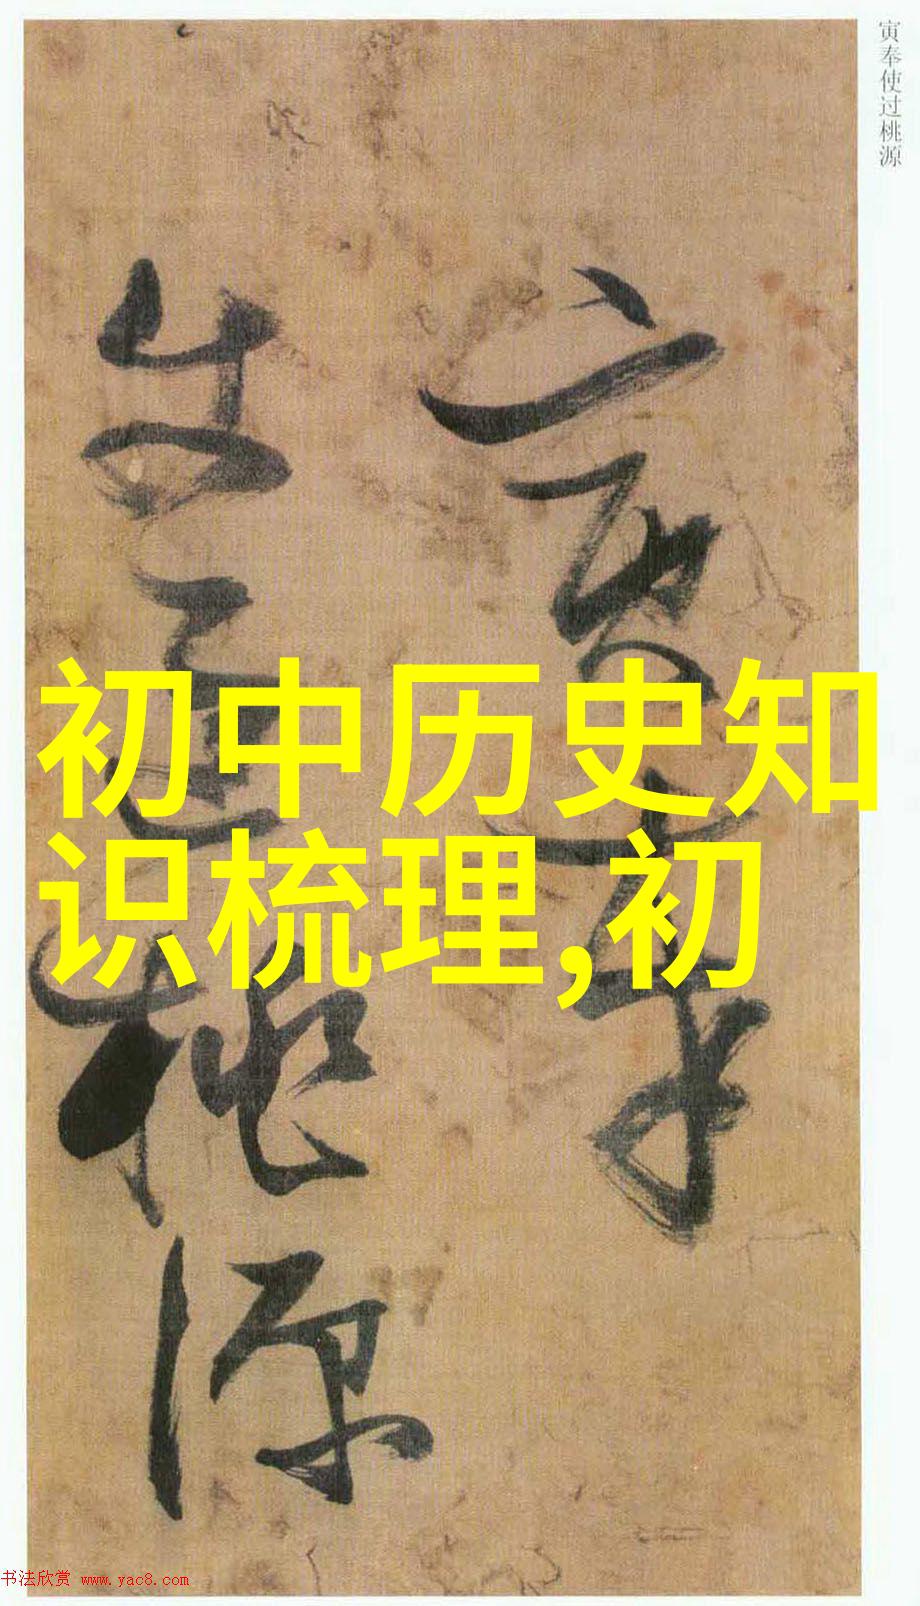 寅奉使过桃源
寅奉
使过桃源
初中历史知
识梳理,初
书法欣赏 www.yac8.com